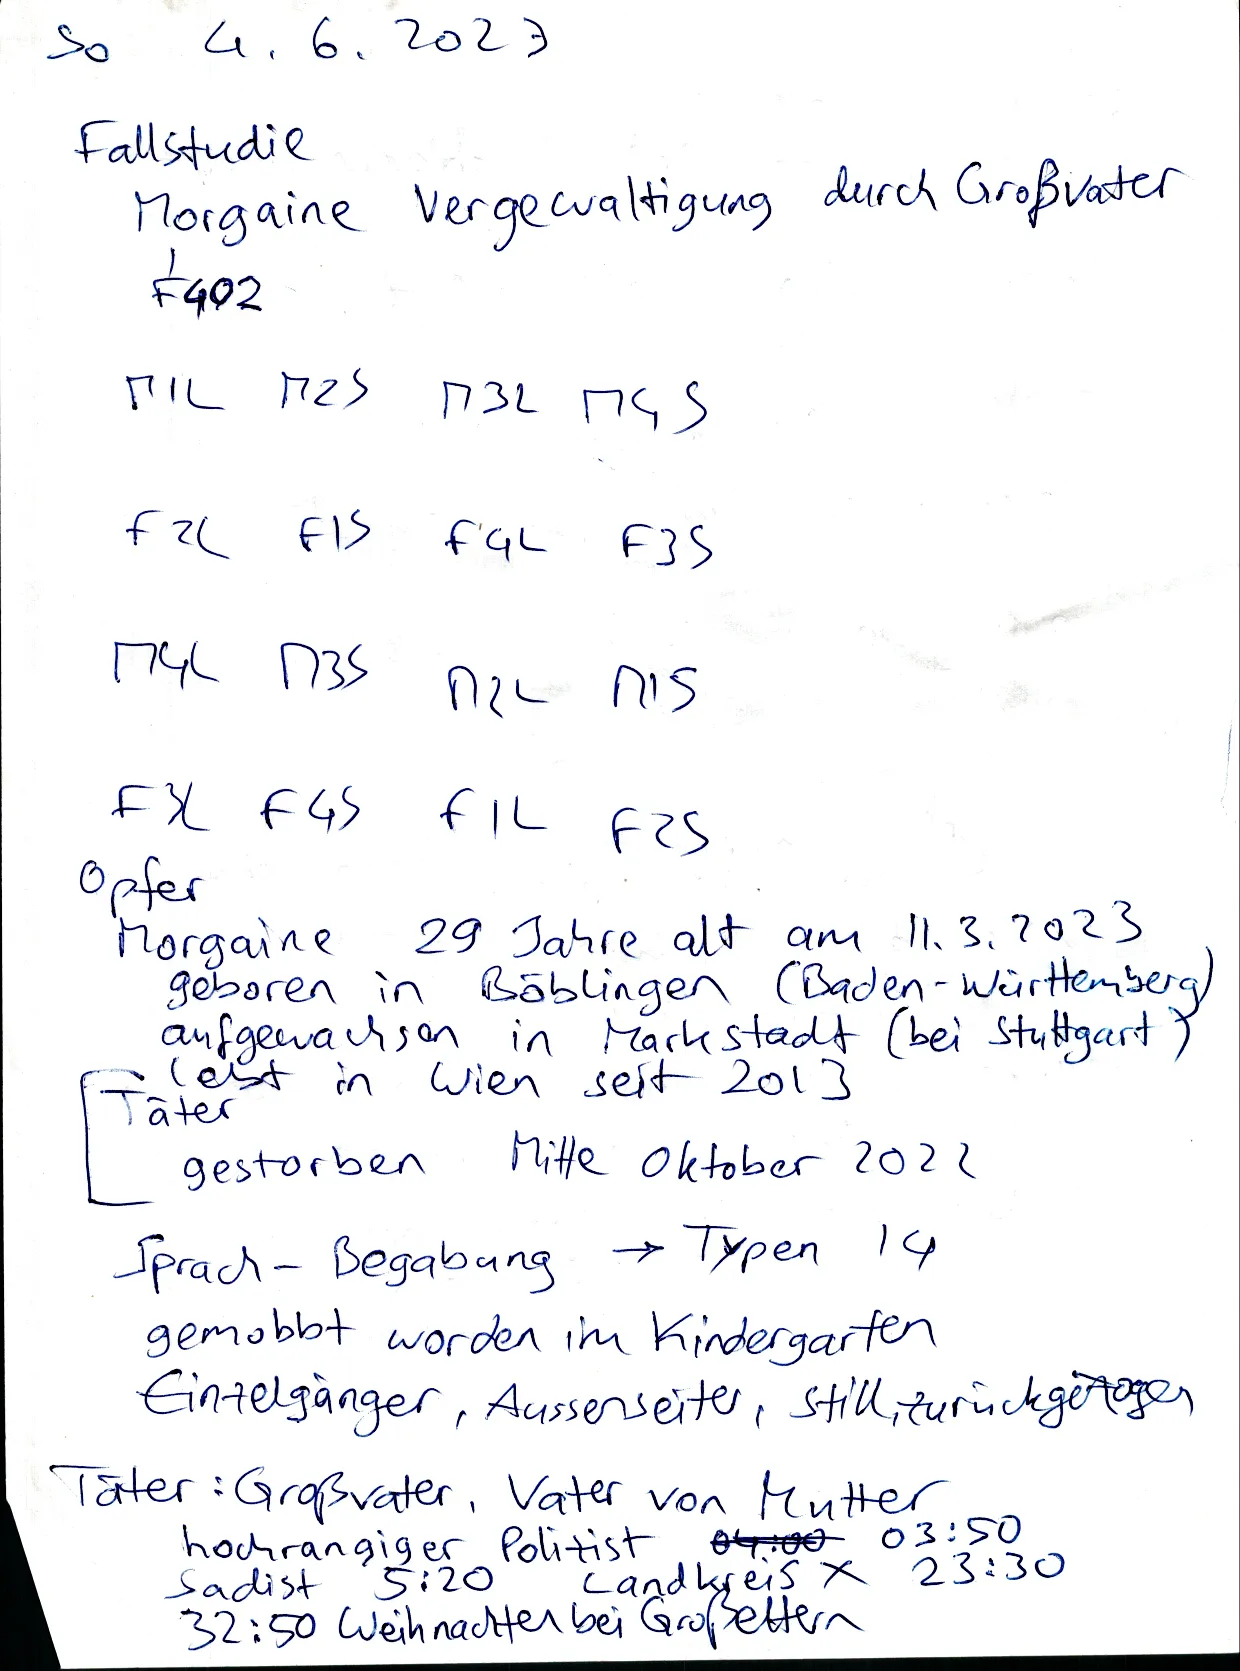 So 4.6.2023
Fallstudie
Morgaine Vergewaltigung durch Großvater
F402
M1L M2S M3L M4S
F2L F1S F4L F3S
M4L M3S M2L M1S
F3L F4S F1L F2S
Opfer
Morgaine 29 Jahre alt am 11.3.2023
geboren in Böblingen (Baden-Württemberg)
aufgewachsen in Markstadt (bei Stuttgart)
lebt in Wien seit 2013
Täter
gestorben Mitte Oktober 2022
Sprach-Begabung → Typen 14
gemobbt worden im Kindergarten
Einzelgänger, Aussenseiter, still, zurückgezogen
Täter: Großvater, Vater von Mutter
hochrangiger Polizist 04:00 03:50
Sadist 5:20 Landkreis X 23:30
32:50 Weihnachten bei Großeltern